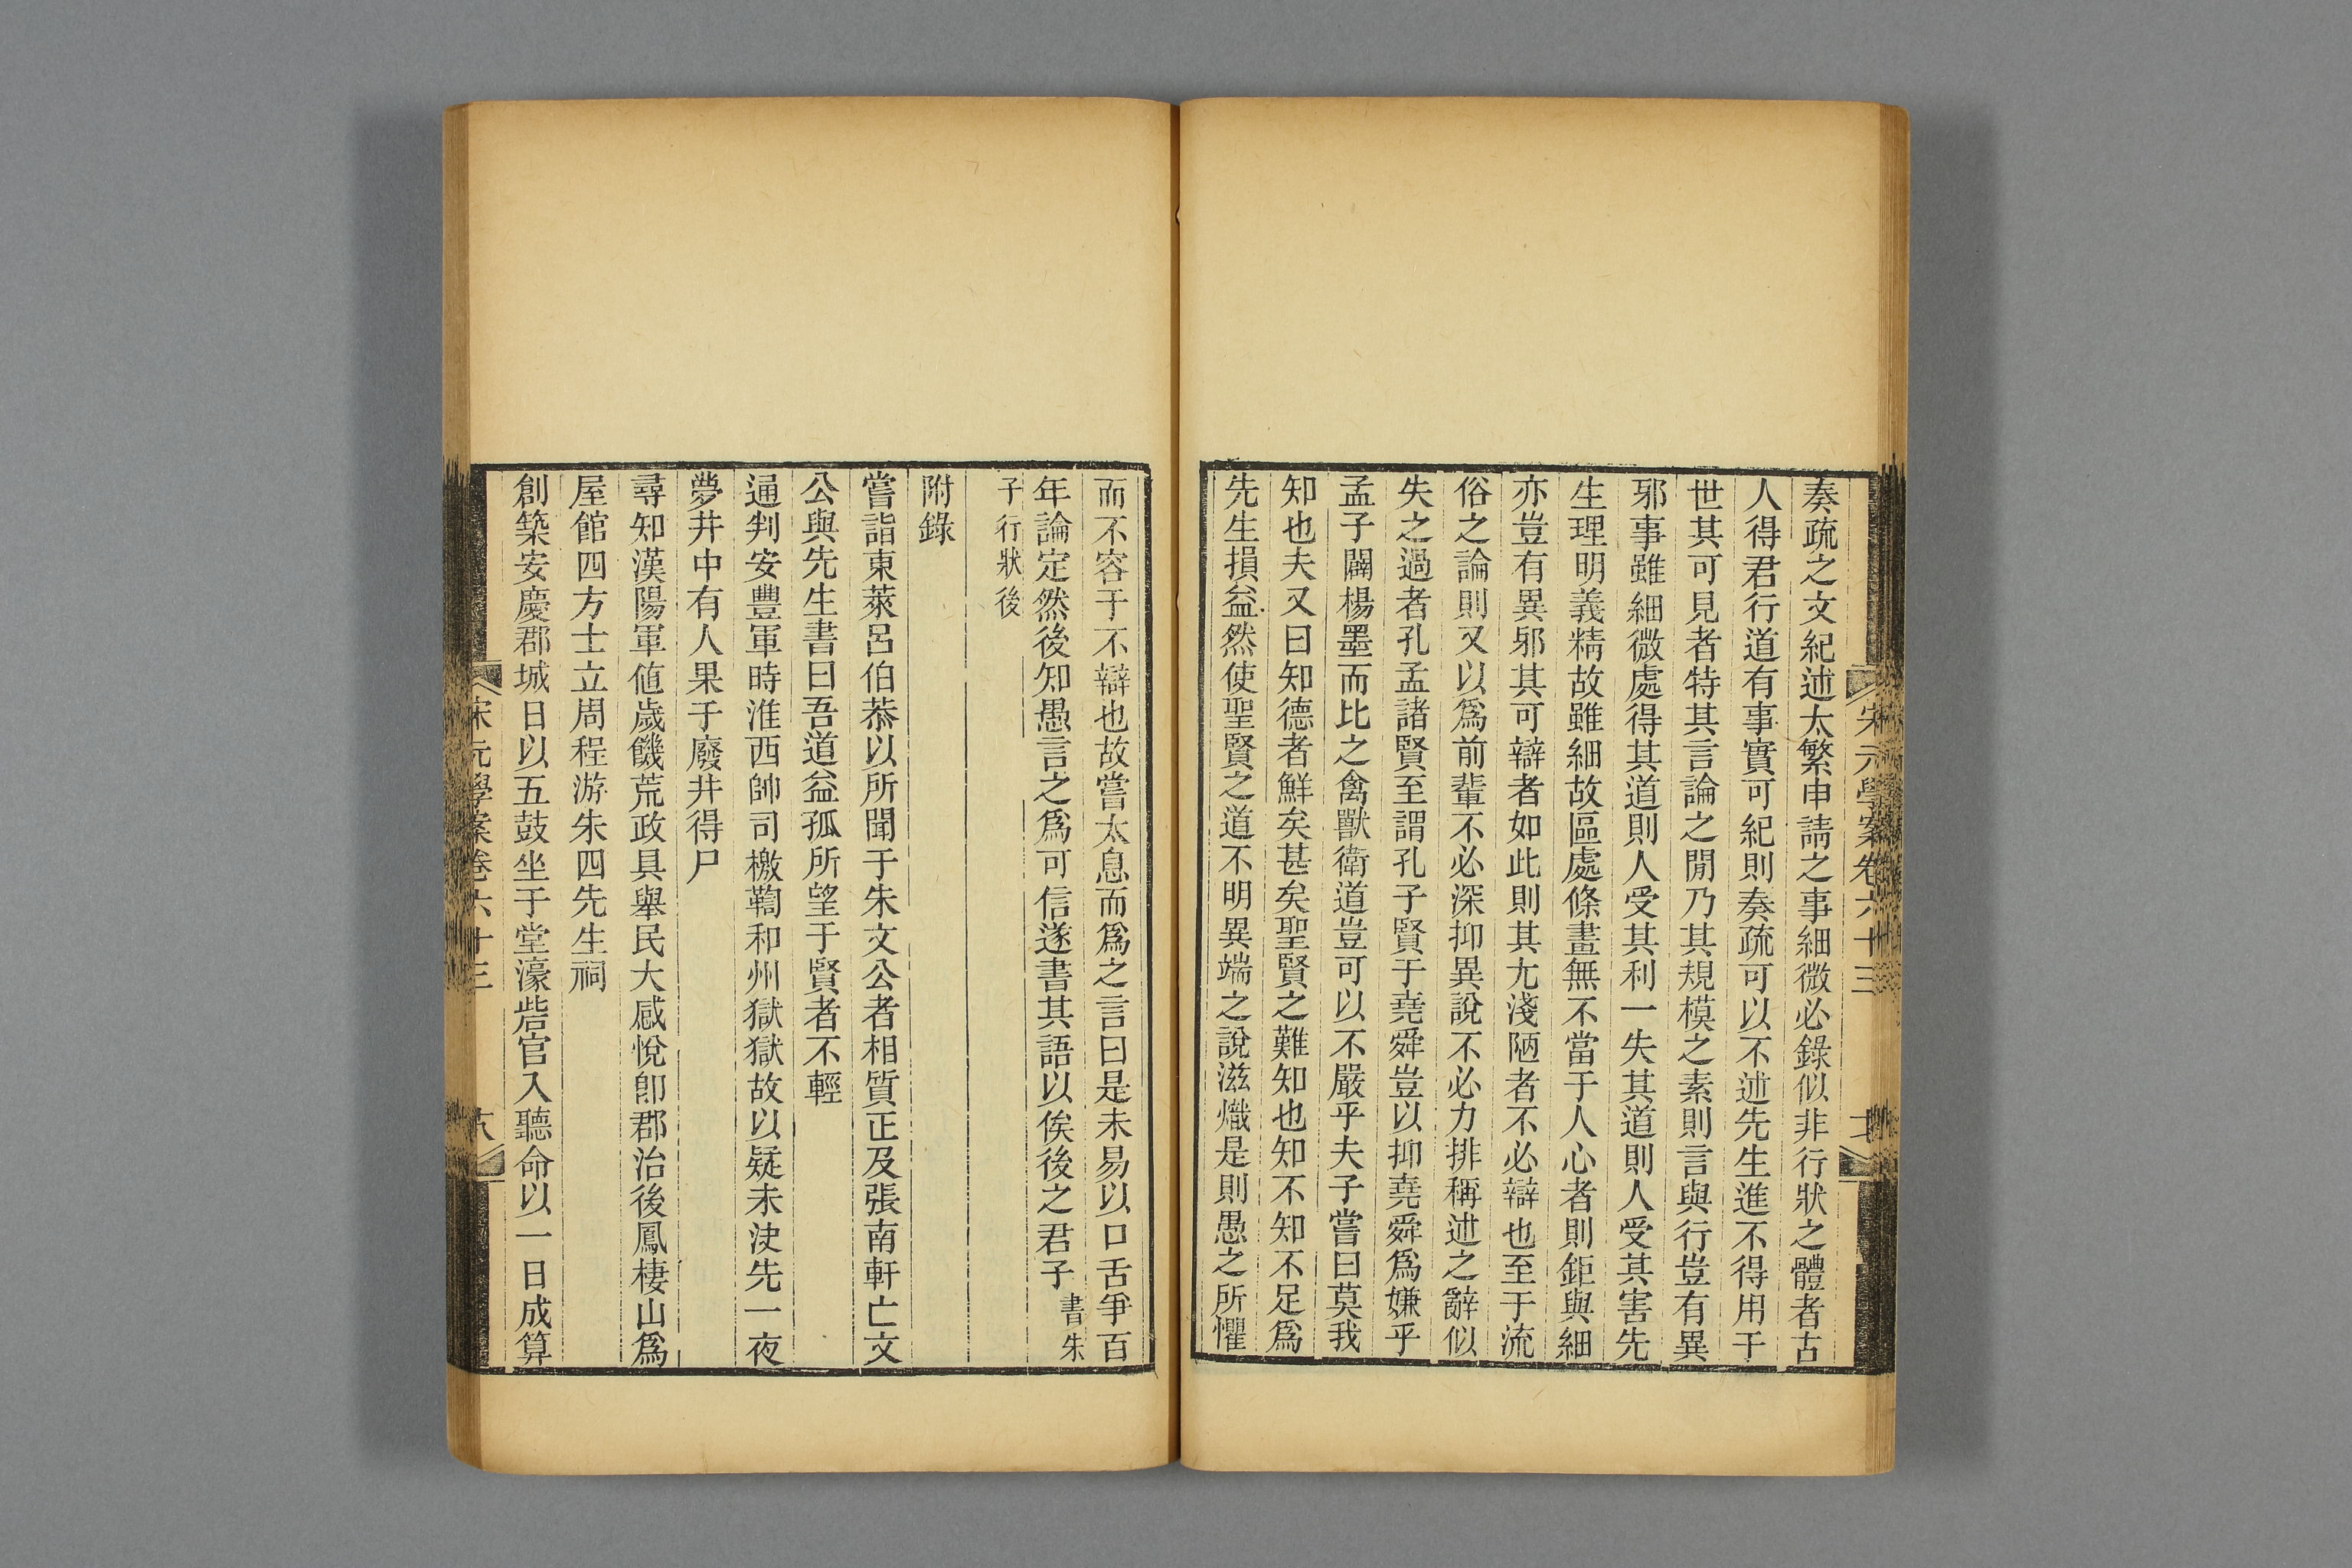 宋元學案卷六十三
奏疏之文紀述太繁申請之事細微必錄似非行狀之體者古
人得君行道有事實可紀則奏疏可以不述先生進不得用于
世其可見者特其言論之閒乃其規模之素則言與行豈有異
邪事雖細微處得其道則人受其利一失其道則人受其害先
生理明義精故雖細故區處條畫無不當于人心者則鉅與細
亦豈有異邪其可辯者如此則其尢淺陋者不必辯也至于流
俗之論則又以爲前輩不必深抑異說不必力排稱述之辭似
失之過者孔孟諸賢至謂孔子賢于堯舜豈以抑堯舜爲嫌乎
孟子闢楊墨而比之禽獸衛道豈可以不嚴乎夫子嘗曰莫我
知也夫又曰知德者鮮矣甚矣聖賢之難知也知不知不足爲
先生損益然使聖賢之道不明異端之說滋熾是則愚之所懼
而不容于不辯也故嘗太息而爲之言曰是未易以口舌爭百
年論定然後知愚言之爲可信遂書其語以俟後之君子書朱
子行狀後
附錄
嘗詣東萊呂伯恭以所聞于朱文公者相質正及張南軒亡文
公與先生書曰吾道益孤所望于賢者不輕
通判安豐軍時淮西帥司檄鞫和州獄獄故以疑未決先一夜
夢井中有人果于廢井得尸
尋知漢陽軍値歲饑荒政具舉民大感悅卽郡治後鳳棲山爲
屋館四方士立周程游朱四先生祠
創築安慶郡城日以五鼓坐于堂濠砦官入聽命以一日成算
宋元學案卷六十三